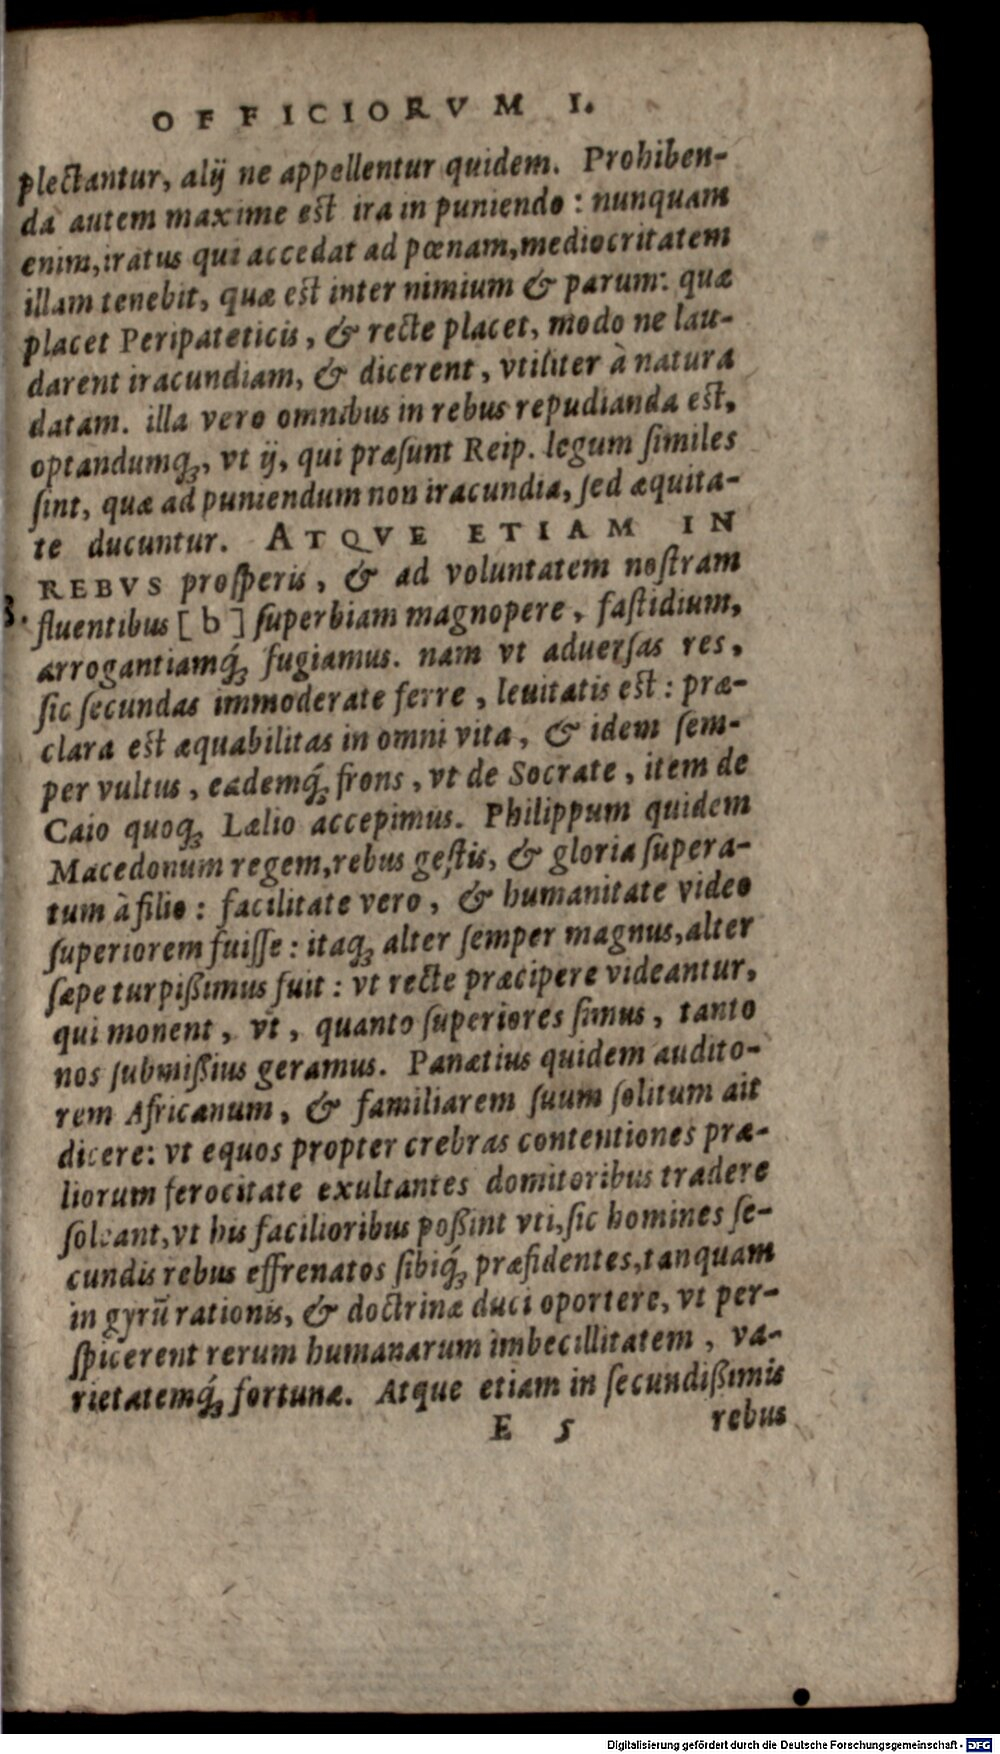 OFFICIORVM I.
plectantur, alij ne appellentur quidem. Prohiben-
da autem maxime est ira in puniendo : nunquam
enim, iratus qui accedat ad pœnam, mediocritatem
illam tenebit, quæ est inter nimium & parum: quæ
placet Peripateticis, & recte placet, modo ne lau-
darent iracundiam, & dicerent, vtiliter à natura
datam. illa vero omnibus in rebus repudianda est,
optandumq́;, vt ij, qui præsunt Reip. legum similes
sint, quæ ad puniendum non iracundia, sed æquita-
te ducuntur. ATQVE ETIAM IN
REBVS prosperis, & ad voluntatem nostram
fluentibus [ b ] superbiam magnopere, fastidium,
arrogantiamq́; fugiamus. nam vt aduersas res,
sic secundas immoderate ferre, leuitatis est : præ-
clara est æquabilitas in omni vita, & idem sem-
per vultus, eademq́; frons, vt de Socrate, item de
Caio quoq; Lælio accepimus. Philippum quidem
Macedonum regem, rebus gestis, & gloria supera-
tum à filio : facilitate vero, & humanitate video
superiorem fuisse : itaq; alter semper magnus, alter
sæpe turpißimus fuit : vt recte præcipere videantur,
qui monent, vt, quanto superiores simus, tanto
nos submißius geramus. Panætius quidem audito-
rem Africanum, & familiarem suum solitum ait
dicere: vt equos propter crebras contentiones præ-
liorum ferocitate exultantes domitoribus tradere
soleant, vt his facilioribus poßint vti, sic homines se-
cundis rebus effrenatos sibiq́; præfidentes, tanquam
in gyrū rationis, & doctrinæ duci oportere, vt per-
spicerent rerum humanarum imbecillitatem, va-
rietatemq́; fortunæ. Atque etiam in secundißimis
E 5 rebus
Digitalisierung gefördert durch die Deutsche Forschungsgemeinschaft - DFG